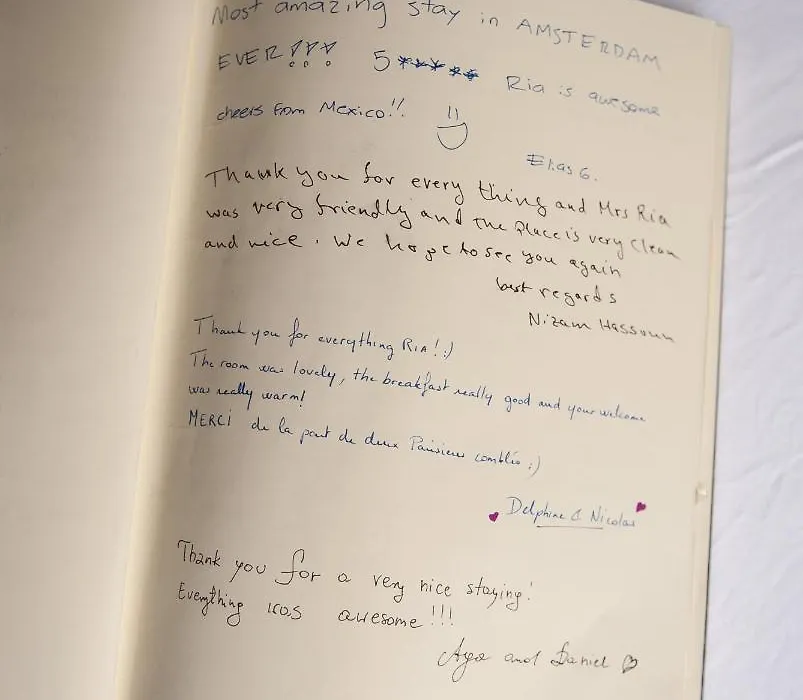 Most amazing stay in AMSTERDAM
EVER!!! 5***** Ria is awesome
cheers from Mexico!!
Elias G.
Thank you for every thing and Mrs Ria
was very friendly and the place is very clean
and nice. We hope to see you again
best regards
Nizam Hassoun
Thank you for everything RIA! :)
The room was lovely, the breakfast really good and your welcome
was really warm!
MERCI de la part de deux Parisiens comblés :)
Delphine & Nicolas
Thank you for a very nice staying!
Everything was awesome!!!
Aga and Daniel ♡